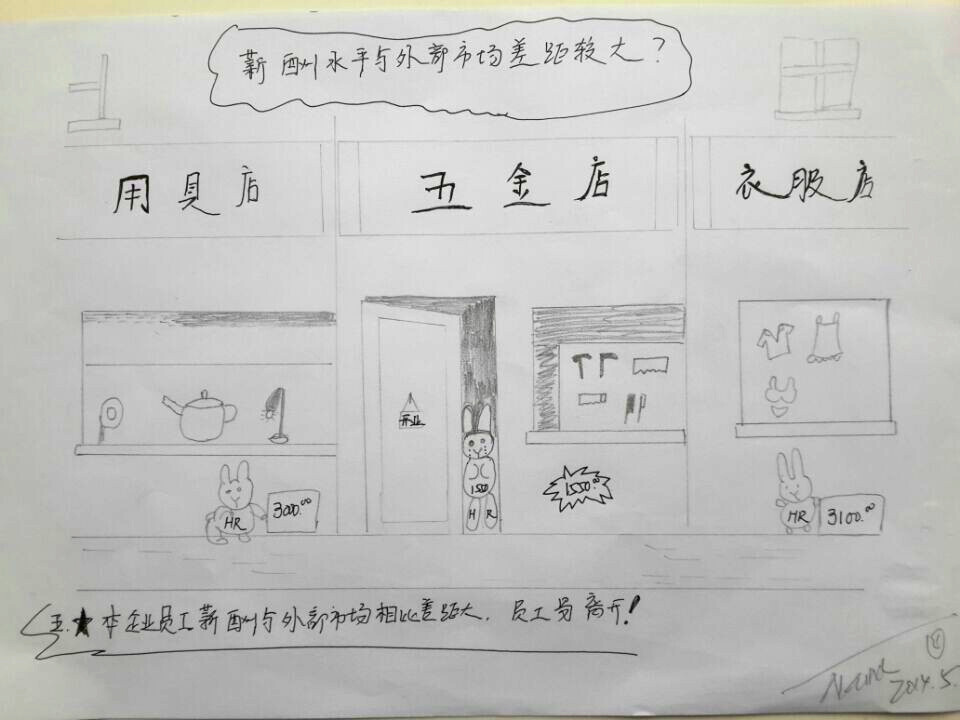 薪酬水平与外部市场差距较大?
用具店
五金店
衣服店
开业
1550
HR
1550.00
HR
3000.00
HR
3100.00
五.★本企业员工薪酬与外部市场相比差距大,员工易离开!
2014.5.